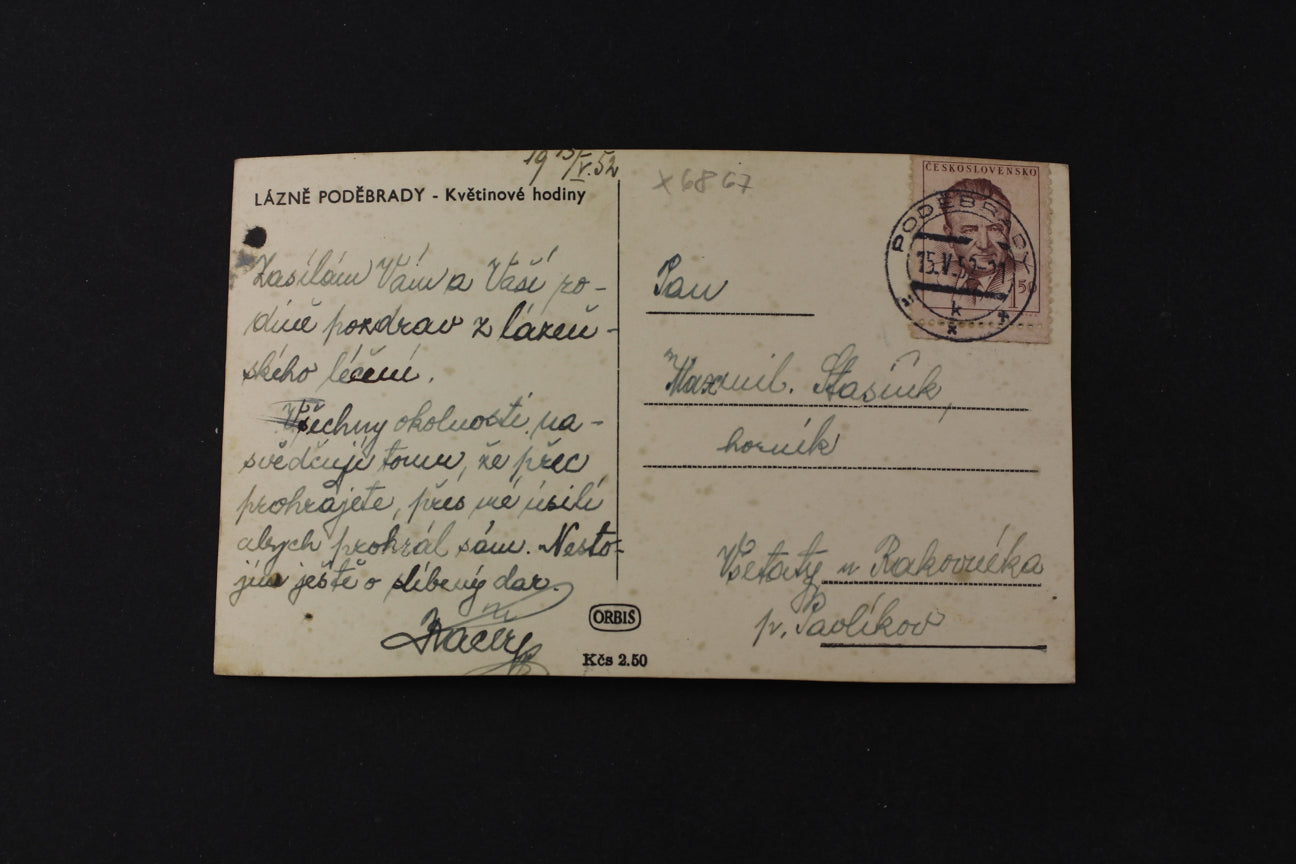 19 15/V. 52
LÁZNĚ PODĚBRADY - Květinové hodiny
Zasílám Vám a Vaší ro-
dině pozdrav z lázeň-
ského léčení.
Všechny okolnosti na-
svědčují tomu, že přec
prohrajete, přes mé úsilí
abych prohrál sám. Nesto-
jím ještě o slíbený dar.
ORBIS
Kčs 2.50
x6867
ČESKOSLOVENSKO
PODĚBRADY
15.V.52
k
1.50
Pan
Maxmil. Stasink,
horník
Všetaty u Rakovníka
p. Pavlíkov